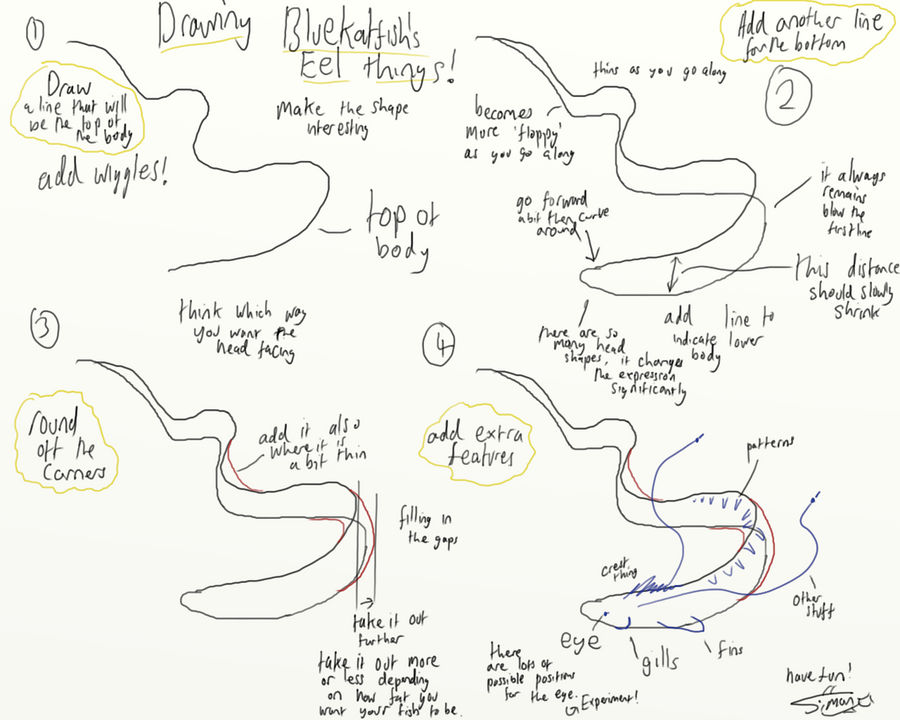 Drawing Bluekatfish's
Eel things!
①
Draw
a line that will
be the top of
the body
add wiggles!
Make the shape
interesting
top of
body
Add another line
for the bottom
②
thins as you go along
becomes
more 'floppy'
as you go along
go forward
a bit then curve
around
it always
remains
blow the
first line
this distance
should slowly
shrink
add line to
indicate lower
body
there are so
many head
shapes, it changes
the expression
significantly
③
think which way
you want the
head facing
round
off the
corners
add it also
where it is
a bit thin
filling in
the gaps
take it out
further
take it out more
or less depending
on how fat you
want your fish to be.
④
add extra
features
patterns
crest
thing
other
stuff
eye
gills
fins
there
are lots of
possible positions
for the eye.
Experiment!
have fun!